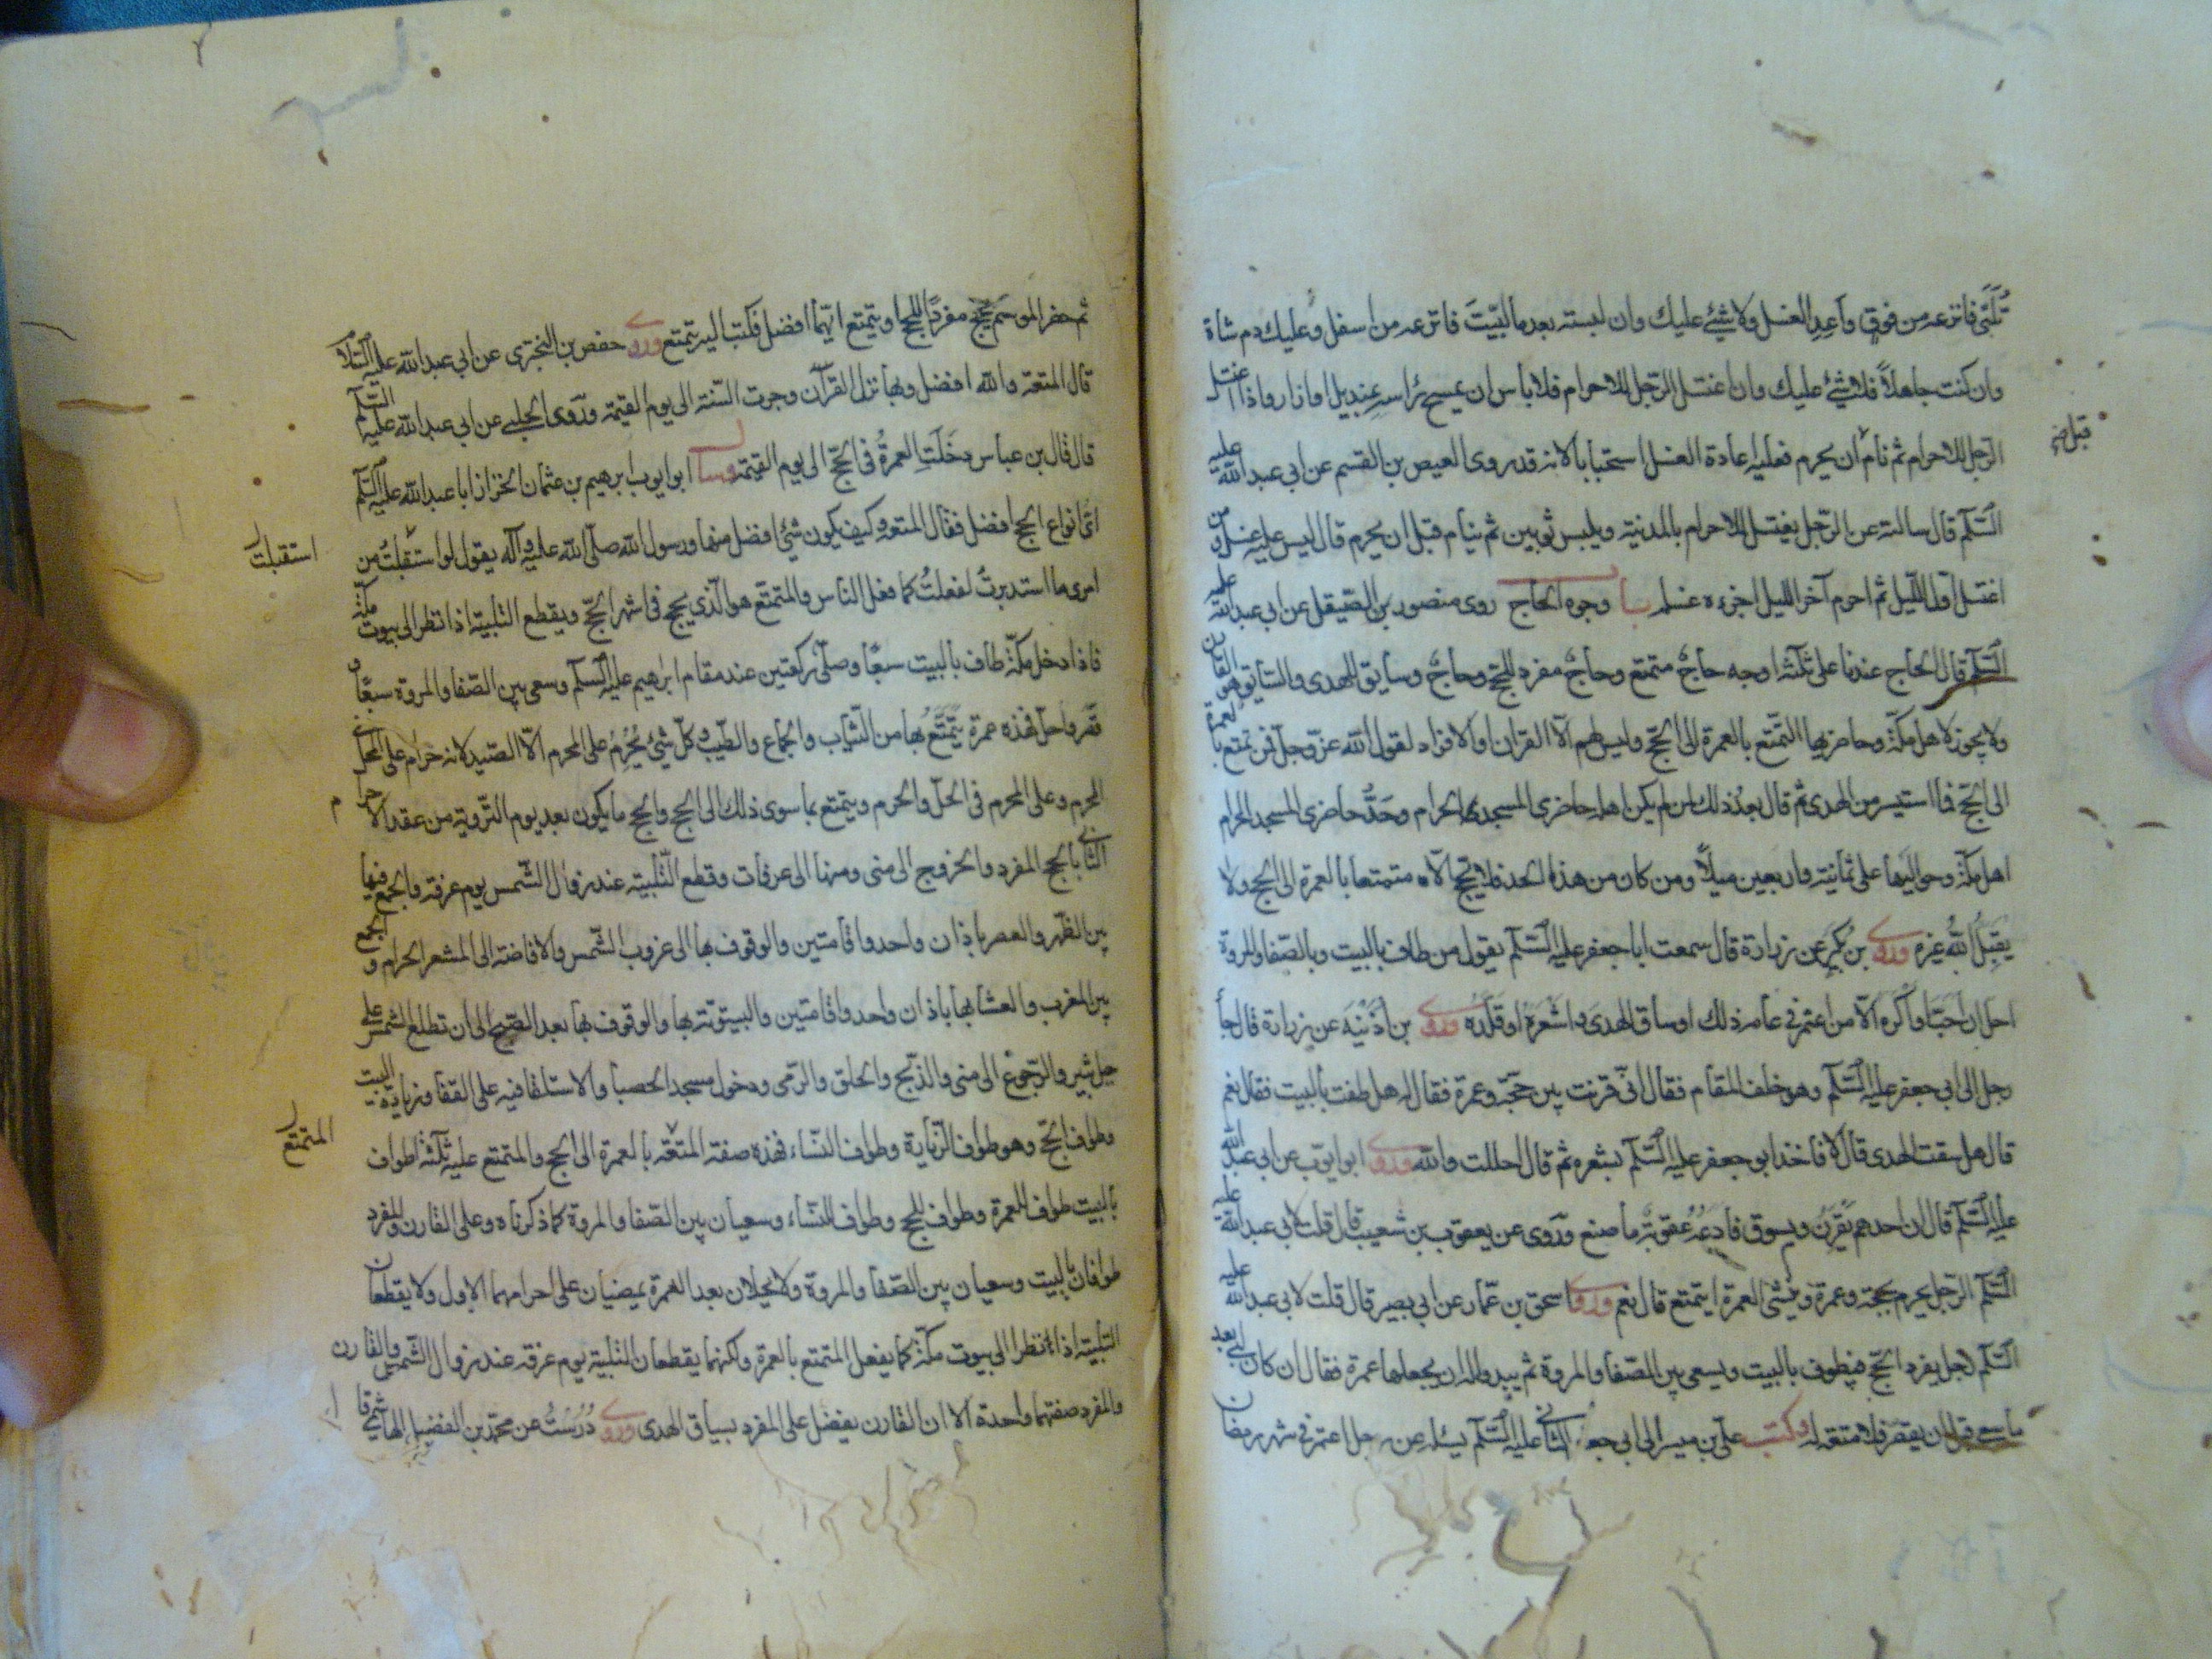 تلبّى فانزعه من فوق وأعد الغسل ولا شيئ عليك وان لبسته بعد ما لبّيت فانزعه من اسفل وعليك دم شاة
وان كنت جاهلاً فلا شيئ عليك وان اغتسل الرّجل للاحرام فلا باس ان يمسح رأسه بمنديل او ازار واذا اغتسل
الرّجل للاحرام ثم نام أن يحرم فعليه اعادة الغسل استحبابا لانه قد روى العيص بن القسم عن ابى عبد الله عليه
قبل
السّلم قال سالته عن الرّجل يغتسل للاحرام بالمدنية ويلبس ثوبين ثم ينام قبل ان يحرم قال ليس عليه غسل ومن
اغتسل اوّل اللّيل ثم احرم آخر الليل اجزءه غسله باب وجوه الحاج روى منصور بن الصّيقل عن ابى عبد الله عليه
السّلم قال الحاج عندنا على ثلثة اوجه حاجّ متمتع وحاجّ مفرد للحجّ وحاجّ وسايق للهدى والسّايق هو القارن
ولا يجوز لاهل مكّة وحاضريها التمّتع بالعمرة الى الحجّ وليس لهم الّا القران او الافراد لقول الله عزّ وجلّ فمن تمتع بالعمرة
الى الحجّ فما استيسر من الهدى ثم قال بعد ذلك لمن لم يكن اهله حاضرى المسجد الحرام وحدّ حاضرى المسجد الحرام
اهل مكّة وحواليها على ثمانية واربعين ميلاً ومن كان من هذا الحد فلا يحجّ الّا متمتعا بالعمرة الى الحج ولا
يقبل الله غيره وروى بن بكير عن زرارة قال سمعت ابا جعفر عليه السّلم يقول من طاف بالبيت وبالصّفا والمروة
احل ان احبّ او كره الّا من اعتمر فى عامه ذلك او ساق الهدى واشعره او قلّده وروى بن اذينة عن زرارة قال جا
رجل الى ابى جعفر عليه السّلم وهو خلف المقام فقال انّى قرنت بين حجّة وعمرة فقال له هل طفت بالبيت فقال نعم
قال هل سقت الهدى قال لا فاخذ ابو جعفر عليه السّلم بشعره ثم قال احللت والله وروى ابو ايوّب عن ابى عبد الله
عليه السّلم قال ان احدهم يقرن ويسوق فادعه عقوبة ما صنع وروى عن يعقوب بن شعيب قال قلت لابى عبد الله عليه
السّلم الرّجل يحرم بحجة وعمرة وينشئ العمرة ايتمتع قال نعم وروى اسحق بن عمّار عن ابى بصير قال قلت لابى عبد الله عليه
السّلم رجل يفرد الحجّ فيطوف بالبيت ويسعى بين الصّفا والمروة ثم يبدو له ان يجعلها عمرة فقال ان كان لبّى بعد
ما سعى قبل ان يقصّر فلا متعة له وكتب علىّ بن ميسر الى ابى جعفر الثانى عليه السّلم يسئله عن رجل اعتمر فى شهر رمضان
ثم حضر الموسم يحجّ مفردًا للحج او يتمتع ايّهما افضل فكتب اليه يتمتع وروى حفص بن البخترى عن ابى عبد الله عليه السّلام
قال المتعة والله افضل وبها نزل القرآن وجرت السّنة الى يوم القيمة وروى الحلبى عن ابى عبد الله عليه السّلم
قال قال بن عباس دخلت العمرة فى الحجّ الى يوم القيمة وسأل ابو ايوب ابرهيم بن عثمان الخزاز ابا عبد الله عليه السّلم
اىّ انواع الحج افضل فقال المتعة وكيف يكون شئ افضل منها ورسول الله صلّى الله عليه وآله يقول لو استقبلت من
استقبلت
امرى ما استدبرت لفعلت كما فعل الناس والمتمتّع هو الّذى يحج فى اشهر الحجّ ويقطع التلبية اذا نظر الى بيوت مكّة
فاذا دخل مكّة طاف بالبيت سبعًا وصلّى ركعتين عند مقام ابرهيم عليه السّلم وسعى بين الصّفا والمروة سبعًا و
قصّر واحلّ فهذه عمرة يتمّتع بها من الثّياب والجماع والطّيب وكلّ شئ يحرم على المحرم الّا الصّيد لانه حرام على المحلّ فى
الحرم وعلى المحرم فى الحلّ والحرم ويتمتع بما سوى ذلك الى الحج والحج ما يكون بعد يوم التّروية من عقد الاحرام
الثانى بالحج المفرد والخروج الى منى ومنها الى عرفات وقطع التّلبية عند زوال الشّمس يوم عرفة والجمع فيها
بين الظّهر والعصر باذان واحد واقامتين والوقوف بها الى غروب الشّمس والافاضة الى المشعر الحرام والجمع
بين المغرب والعشا بها باذان واحد واقامتين والبيتوتة بها والوقوف بها بعد الصّبح الى ان تطلع الشّمس على
جبل ثبير والرّجوع الى منى والذّبح والحلق والرّمى ودخول مسجد الحصبا والاستلقا فيه على القفا وزيارة البيت
وطواف الحجّ وهو طواف الزّيارة وطواف النّساء فهذه صفة المتعة بالعمرة الى الحج والمتمتع عليه ثلثة اطواف
المتمتع
بالبيت طواف للعمرة وطواف للحج وطواف للنّساء وسعيان بين الصّفا والمروة كما ذكرناه وعلى القارن والمفرد
طوافان بالبيت وسعيان بين الصّفا والمروة ولا يحلان بعد العمرة يمضيان على احرامهما الاول ولا يقطعان
التلبية اذا نظرا الى بيوت مكّة كما يفعل المتمتع بالعمرة ولكنهما يقطعان التلبية يوم عرفة عند زوال الشّمس والقارن
والمفرد صفتهما واحدة الا ان القارن يفضل على المفرد بسياق الهدى وروى درست عن محمّد بن الفضل الهاشمى قال